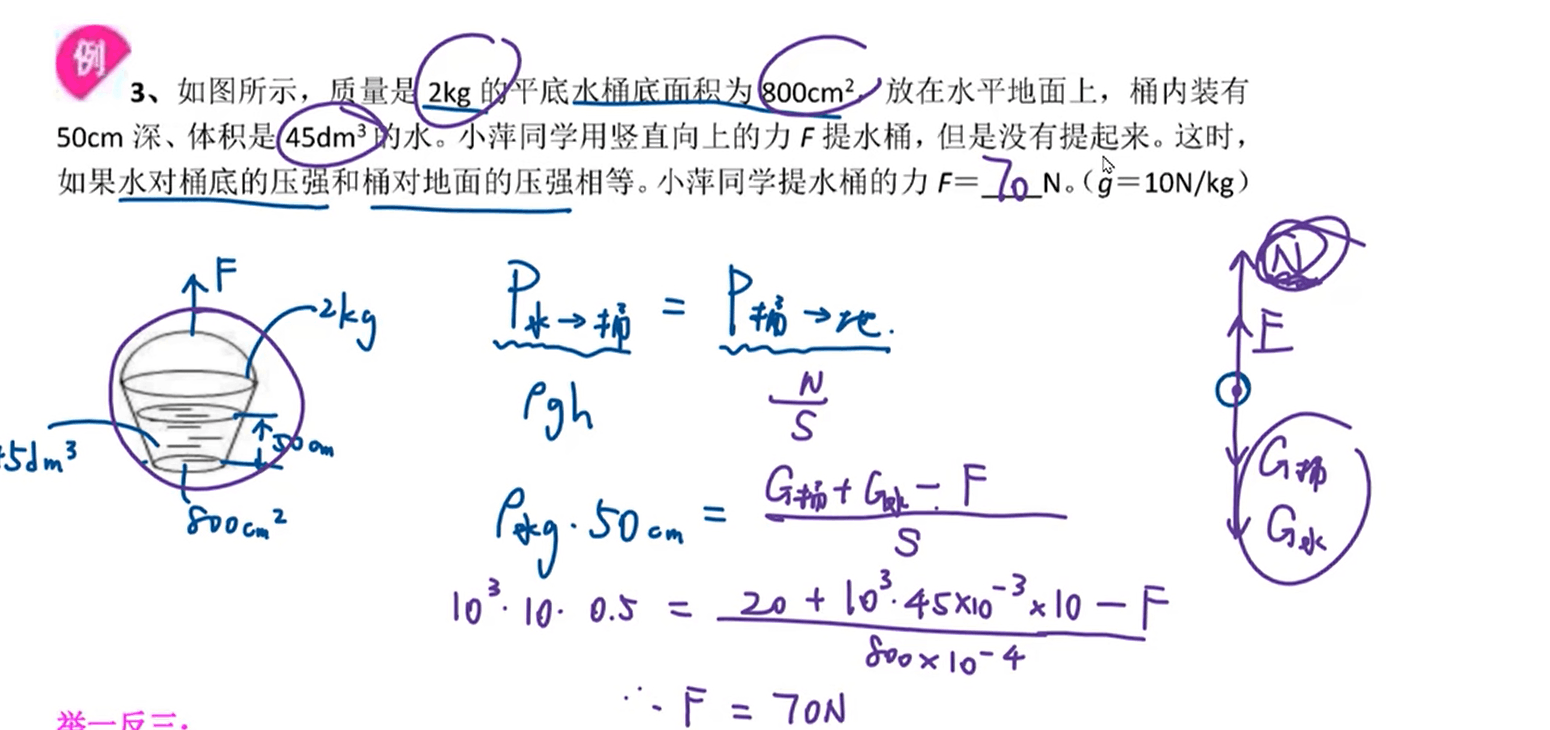 例
3、如图所示，质量是 2kg 的平底水桶底面积为 800cm²，放在水平地面上，桶内装有
50cm 深、体积是 45dm³ 的水。小萍同学用竖直向上的力 F 提水桶，但是没有提起来。这时，
如果水对桶底的压强和桶对地面的压强相等。小萍同学提水桶的力 F＝70N。（g＝10N/kg）
F
2kg
50cm
5dm³
800cm²
P水→桶 = P桶→地.
ρgh
N/S
ρ水g·50cm = (G桶+G水-F)/S
10³·10·0.5 = (20+10³·45×10⁻³×10-F)/(800×10⁻⁴)
∴ F = 70N
N
F
G桶
G水
举一反三：